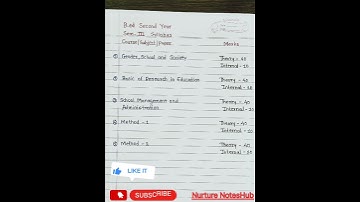 B.ed Second Year
Sem-III Syllabus
Course/Subject/Paper
Marks
① Gender, School and Society
Theory - 40
Internal - 10
② Basic of Research in Education
Theory - 40
Internal - 10
③ School Management and
Administration
Theory - 40
Internal - 10
④ Method - 1
Theory - 40
Internal - 10
⑤ Method - 2
Theory - 40
Internal - 10
LIKE IT
SUBSCRIBE
Nurture NotesHub